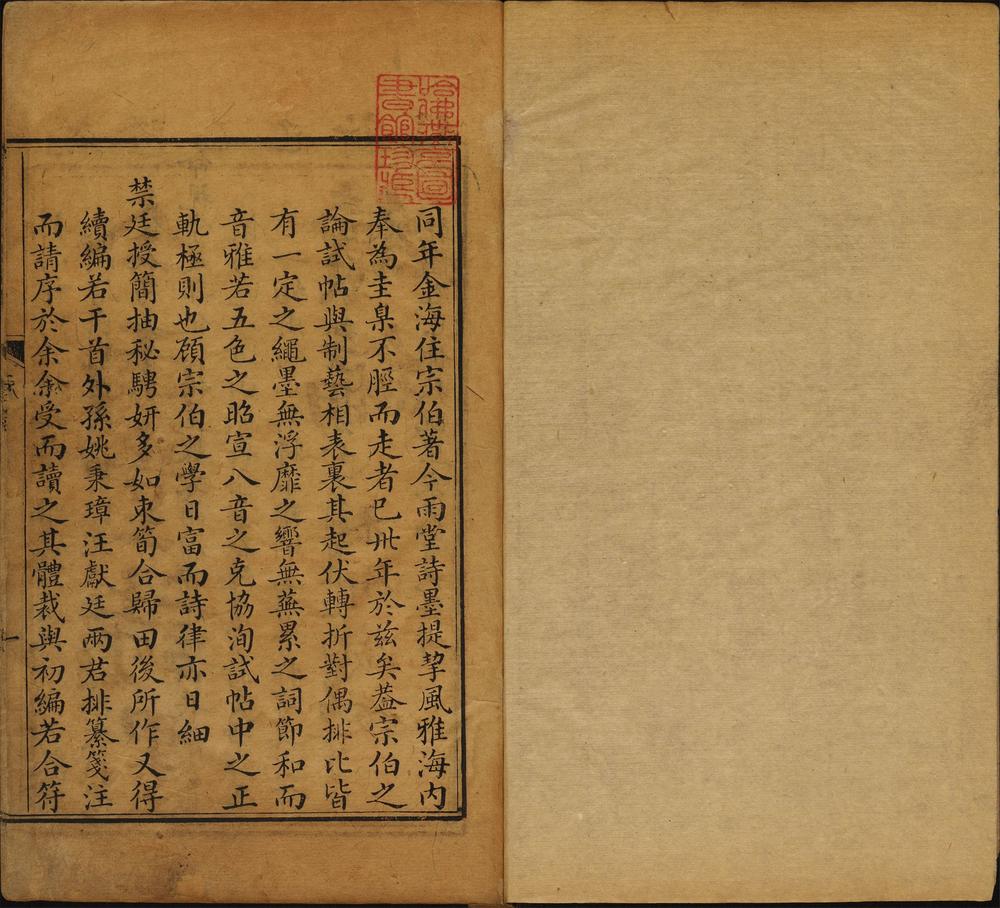 哈佛燕京圖書館珍藏
同年金海住宗伯著今雨堂詩墨提挈風雅海内
奉為圭臬不脛而走者已卅年於茲矣葢宗伯之
論試帖與制藝相表裏其起伏轉折對偶排比皆
有一定之繩墨無浮靡之響無蕪累之詞節和而
音雅若五色之昭宣八音之克協洵試帖中之正
軌極則也顧宗伯之學日富而詩律亦日細
禁廷授簡抽秘騁妍多如束筍合歸田後所作又得
續編若干首外孫姚秉璋汪獻廷兩君排纂箋注
而請序於余余受而讀之其體裁與初編若合符
一